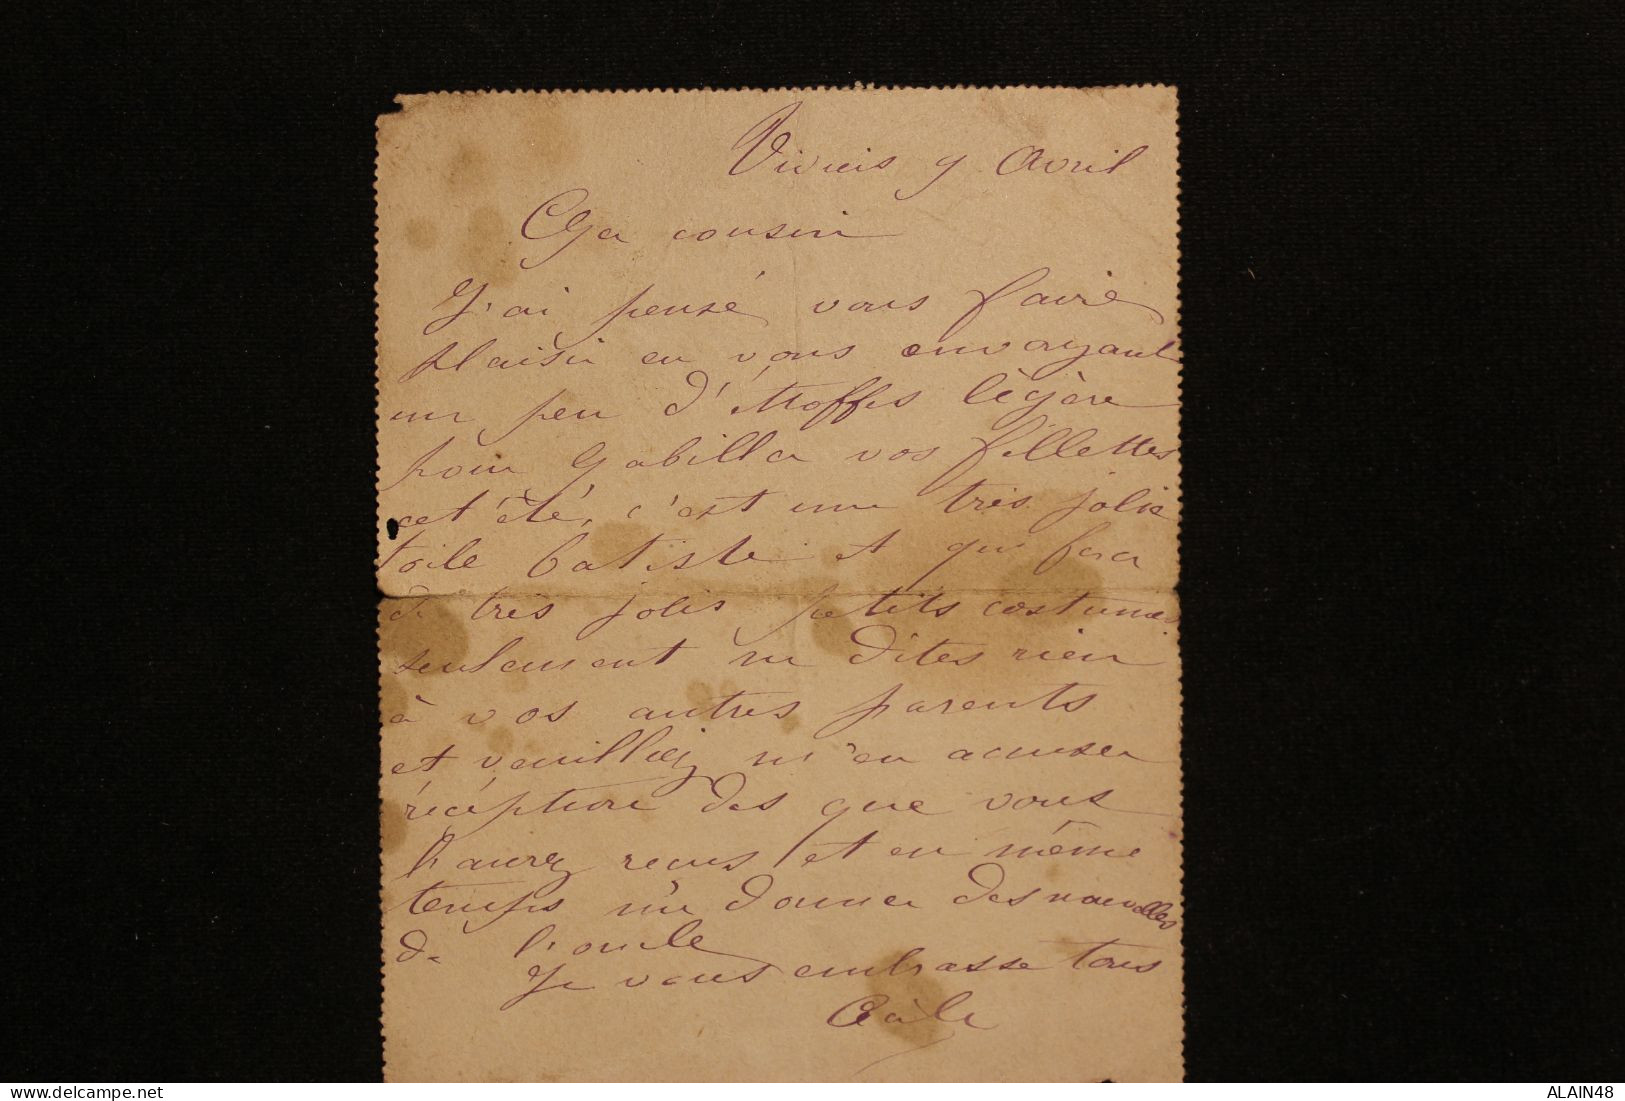 Viviers 9 Avril
cousin
J'ai pensé vous faire
plaisir en vous envoyant
un peu d'étoffes légère
pour habiller vos fillettes
cet été, c'est une très jolie
toile batiste et qui fera
de très jolis petits costumes
seulement ne dites rien
à vos autres parents
et veuillez m'en accuser
réception dès que vous
l'aurez reçus et en même
temps me donner des nouvelles
de l'oncle
Je vous embrasse tous
Cécile
delcampe.net
ALAIN48